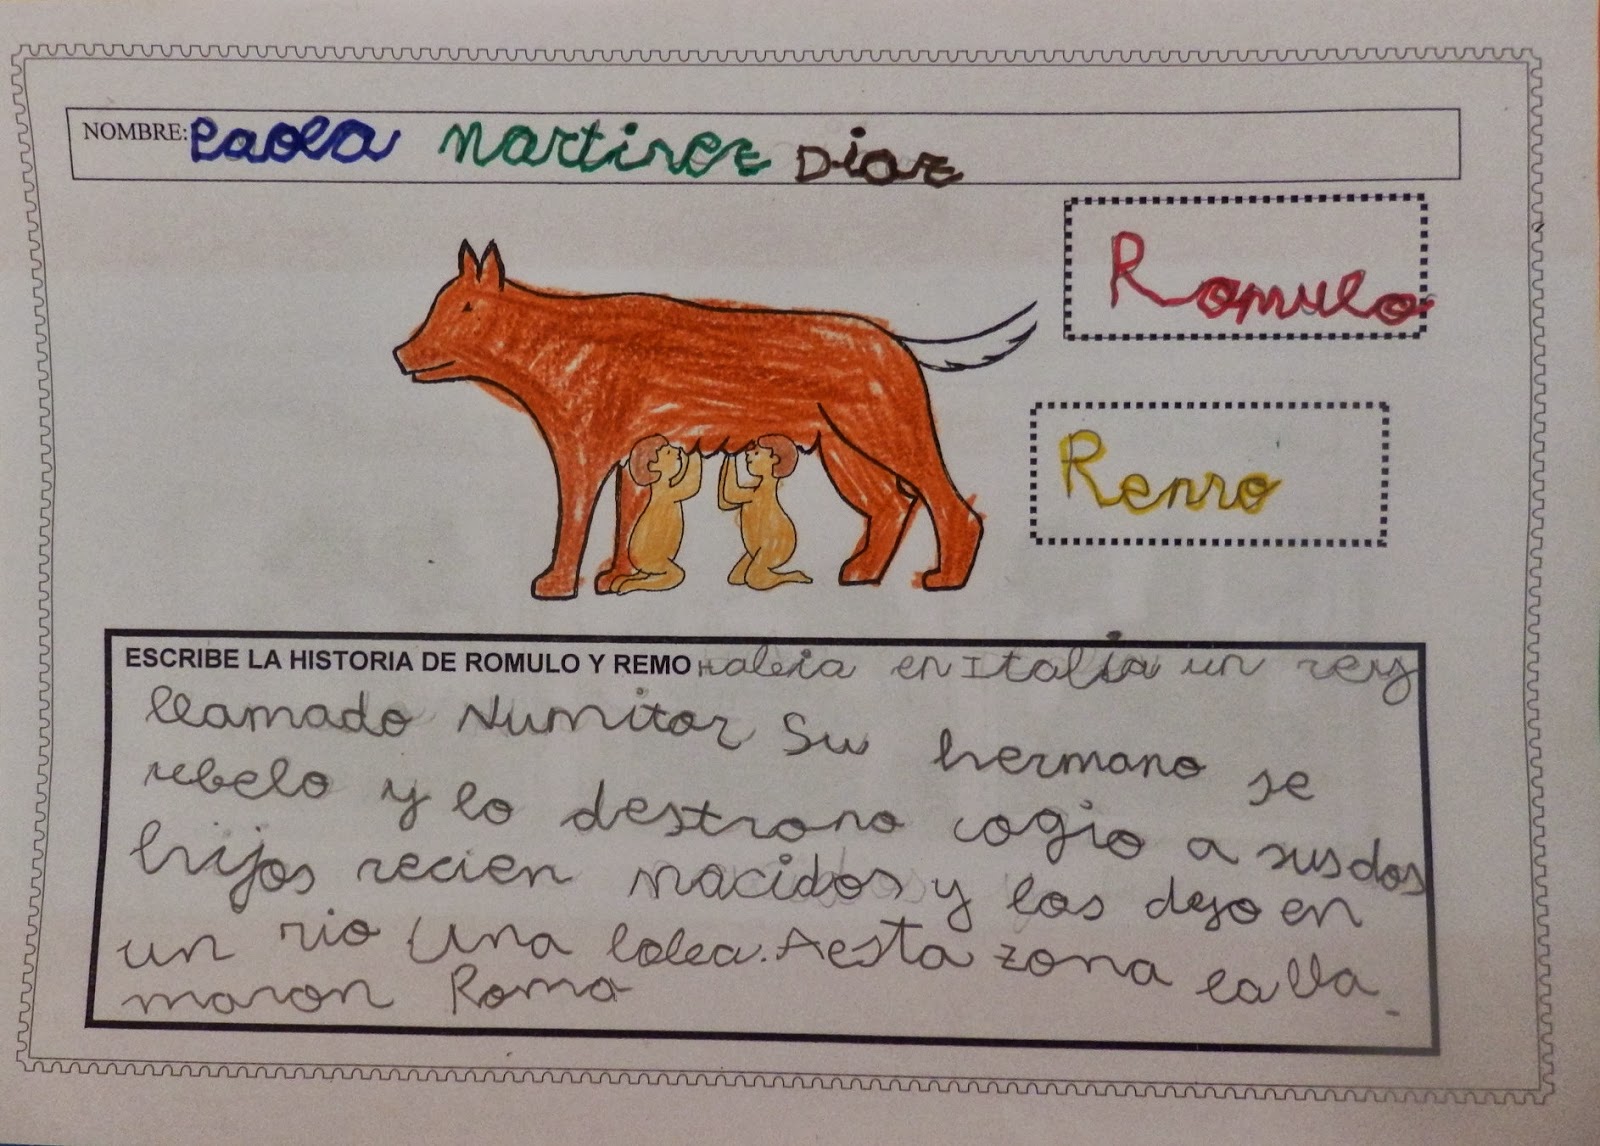 NOMBRE: Paola Martinez Diaz
Romulo
Remo
ESCRIBE LA HISTORIA DE ROMULO Y REMO Habia en Italia un rey
llamado Numitor Su hermano se
rebelo y lo destrono cogio a sus dos
hijos recien nacidos y los dejo en
un rio Una loba. A esta zona la lla-
maron Roma